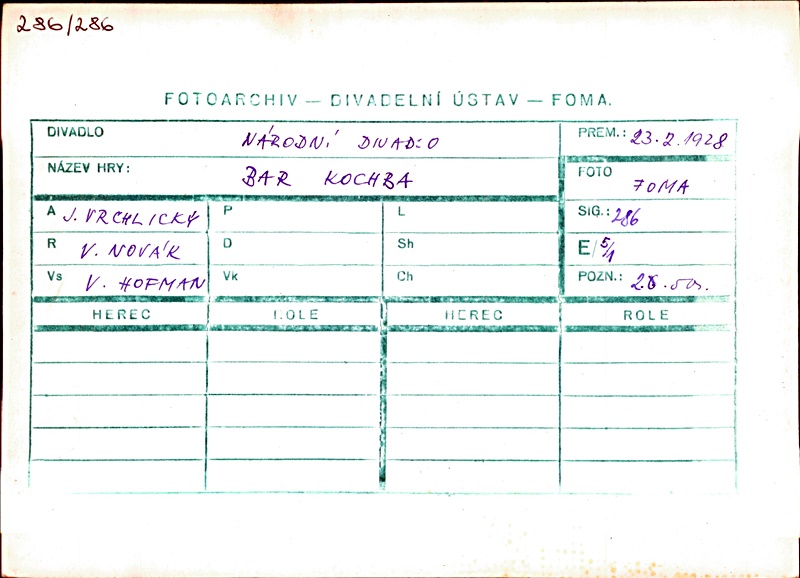 286/286
FOTOARCHIV — DIVADELNÍ ÚSTAV — FOMA.
DIVADLO NÁRODNÍ DIVADLO PREM.: 23.2.1928
NÁZEV HRY: BAR KOCHBA FOTO FOMA
A J. VRCHLICKÝ P L SIG.: 286
R V. NOVÁK D Sh E/5/1
Vs V. HOFMAN Vk Ch POZN.:
HEREC ROLE HEREC ROLE